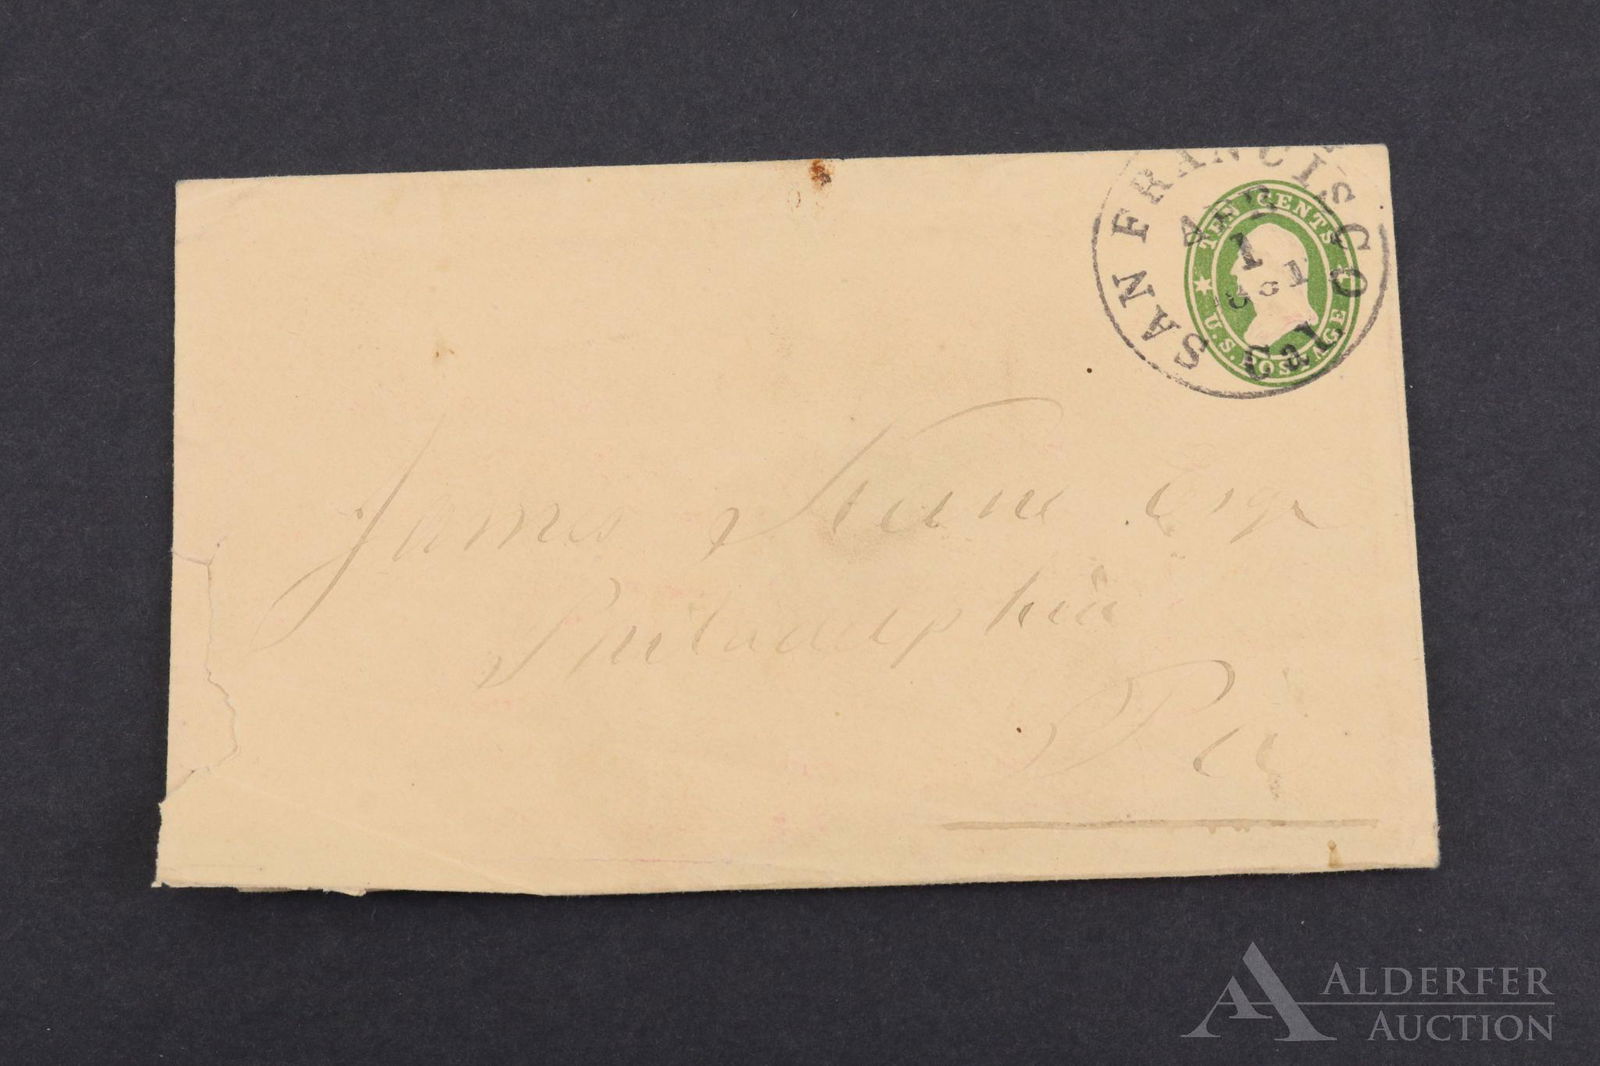 SAN FRANCISCO
1
1861
Cal
TEN CENTS
U.S. POSTAGE
James Kane Esqr
Philadelphia
Pa
ALDERFER
AUCTION